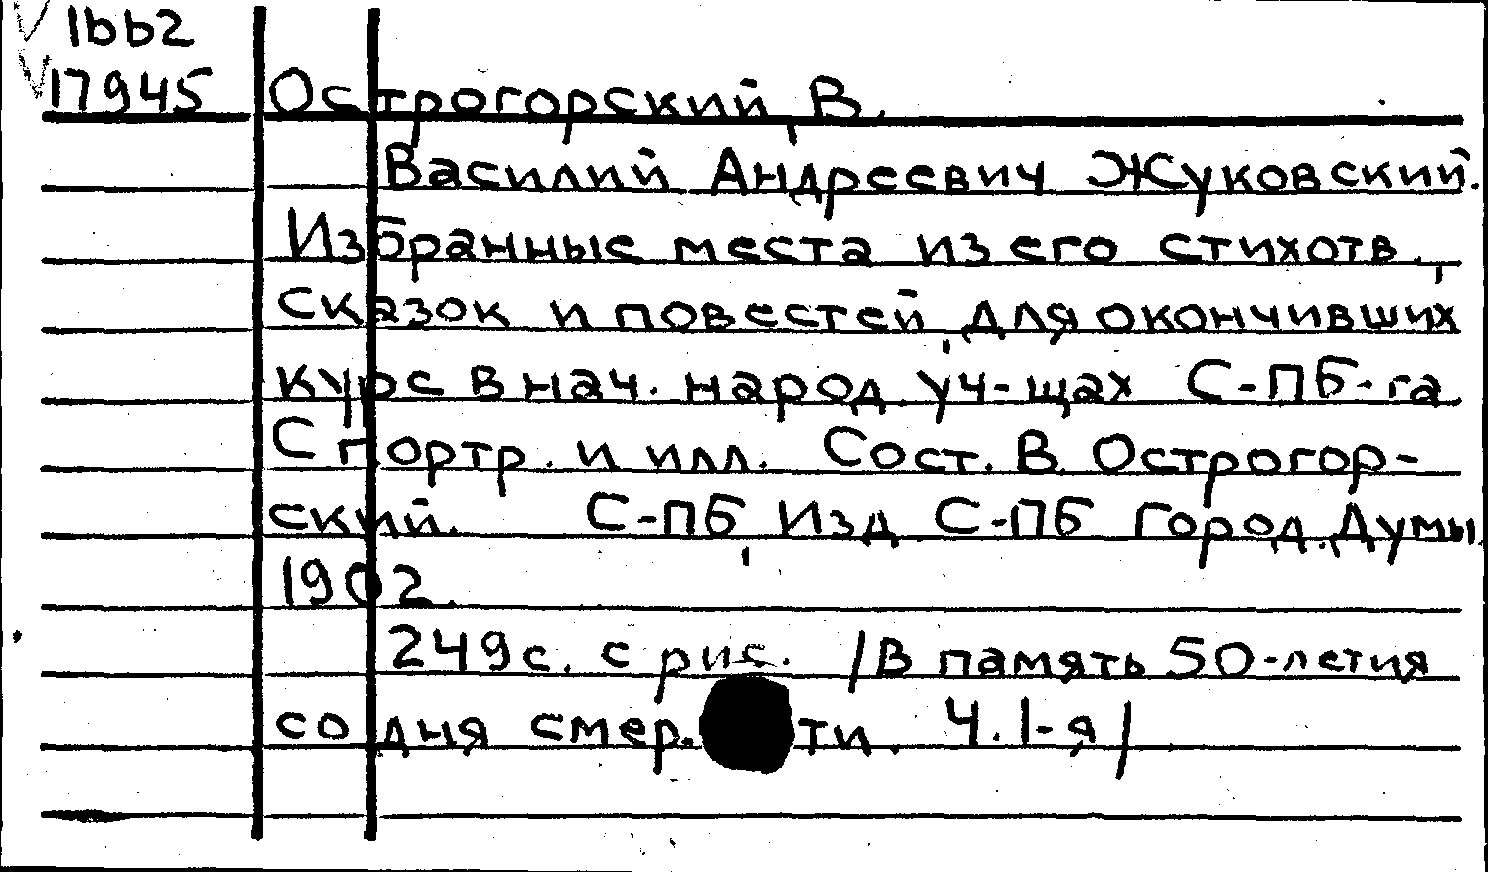 1662
17945 Острогорский, В.
Василий Андреевич Жуковский.
Избранные места из его стихотв.,
сказок и повестей, для окончивших
курс в нач. народ. уч-щах С-ПБ-га
С портр. и илл. Сост. В. Острогор-
ский. С-ПБ, Изд. С-ПБ Город. Думы,
1902.
249с. с рис. /В память 50-летия
со дня смер. ти. Ч. I-я/